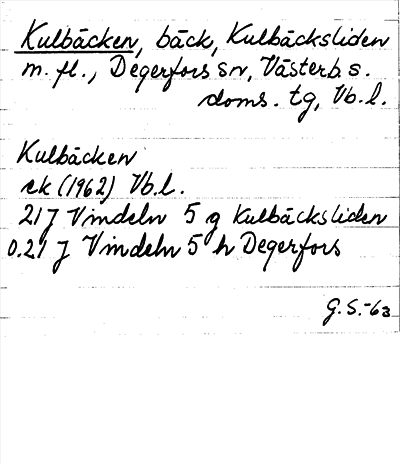 Kulbäcken, bäck, Kulbäcksliden
m. fl., Degerfors sn, Västerb. s.
doms. tg, Vb. l.
Kulbäcken
ek (1962) Vb.l.
21 J Vindeln 5 g Kulbäcksliden
0.21 J Vindeln 5 h Degerfors
G.S.-63